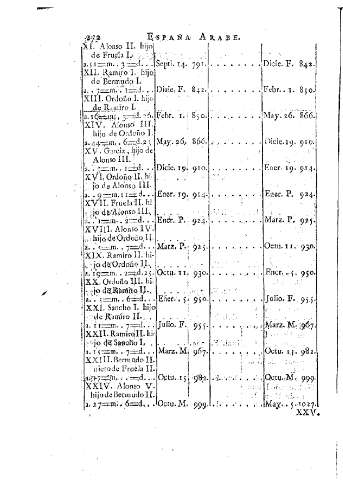 272 ESPAÑA ARABE.
XI. Alonso II. hijo
de Fruela I.
a. 11=m. . 3=d. . . Sept. 14. 791. . . . . . . . Dicie. F. 842.
XII. Ramiro I. hijo
de Bermudo I.
a. . 7=m. . =d. . . Dicie. F. 842. . . . . . . . Febr. 1. 850.
XIII. Ordoño I. hijo
de Ramiro I.
a. 16=m. . 3=d. 26. Febr. 1. 850. . . . . . . . May. 26. 866.
XIV. Alonso III.
hijo de Ordoño I.
a. 44=m. . 6=d. 25 May. 26. 866. . . . . . . . Dicie. 19. 910.
XV. Garcia, hijo de
Alonso III.
a. . 3=m. . 1=d. . . Dicie. 19. 910. . . . . . . . Ener. 19. 914.
XVI. Ordoño II. hi-
jo de Alonso III.
a. . 9=m. . 11=d. . . Ener. 19. 914. . . . . . . . Ener. P. 924.
XVII. Fruela II. hi-
jo de Alonso III.
a. . 1=m. . 2=d. . . Ener. P. 924. . . . . . . . Marz. P. 925.
XVIII. Alonso IV.
hijo de Ordoño II.
a. . 5=m. . 7=d. . . Marz. P. 925. . . . . . . . Octu. 11. 930.
XIX. Ramiro II. hi-
jo de Ordoño II.
a. 19=m. . 2=d. 25. Octu. 11. 930. . . . . . . . Ener. . 5. 950.
XX. Ordoño III. hi-
jo de Ramiro II.
a. . 5=m. . 6=d. . . Ener. 5. 950. . . . . . . . Julio. F. 955.
XXI. Sancho I. hijo
de Ramiro II.
a. 11=m. . 7=d. . . Julio. F. 955. . . . . . . . Marz. M. 967.
XXII. Ramiro III. hi-
jo de Sancho I.
a. 15=m. . 7=d. . . Marz. M. 967. . . . . . . . Octu. 15. 982.
XXIII. Bermudo II.
nieto de Fruela II.
a. 17=m. . =d. . . Octu. 15. 982. . . . . . . . Octu. M. 999.
XXIV. Alonso V.
hijo de Bermudo II.
a. 27=m. . 6=d. . . Octu. M. 999. . . . . . . . May. . 5. 1027.
XXV.